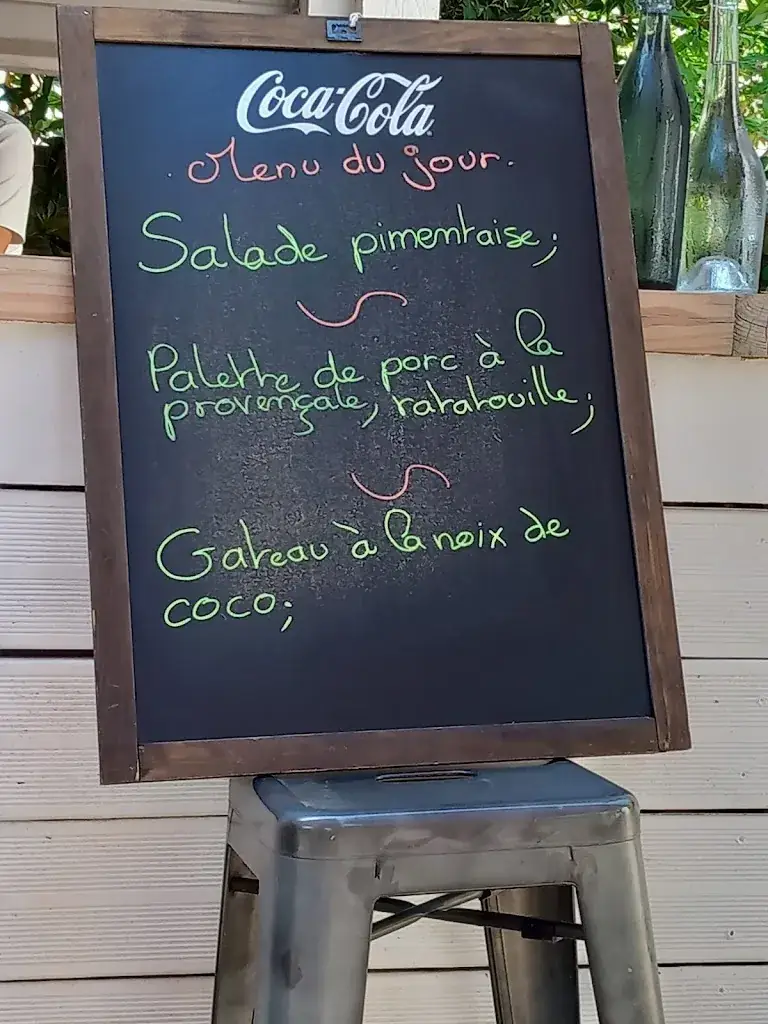 Coca-Cola
. Menu du jour.
Salade pimentaise;
Palette de porc à la
provençale, ratatouille;
Gateau à la noix de
coco;